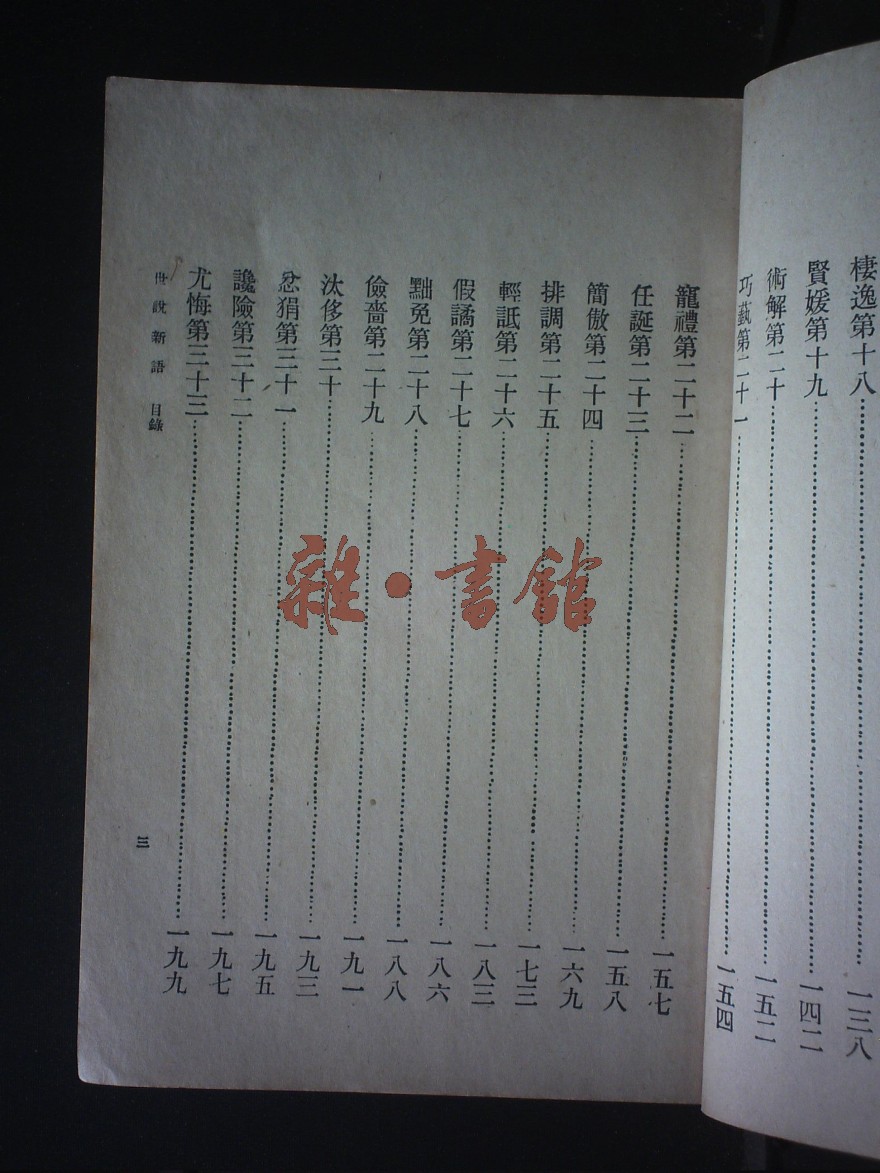 棲逸第十八……一三八
賢媛第十九……一四二
術解第二十……一五二
巧藝第二十一……一五四
寵禮第二十二……一五七
任誕第二十三……一五八
簡傲第二十四……一六九
排調第二十五……一七三
輕詆第二十六……一八三
假譎第二十七……一八六
黜免第二十八……一八八
儉嗇第二十九……一九一
汰侈第三十……一九三
忿狷第三十一……一九五
讒險第三十二……一九七
尤悔第三十三……一九九
世說新語 目錄
三
雜·書館